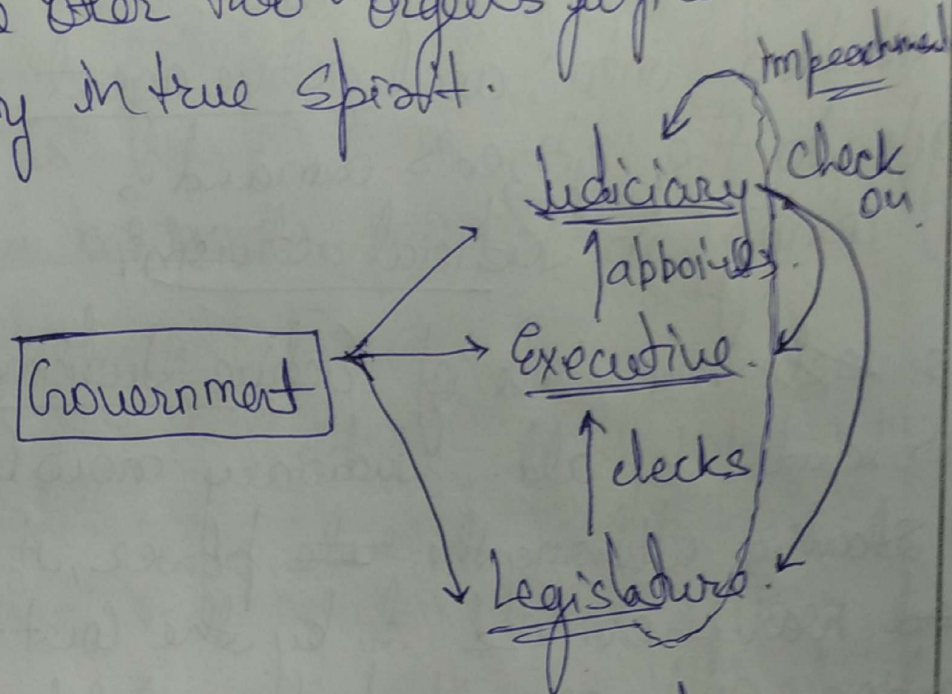 other two organs
y in true spirit.
Impeachment
Judiciary
check
on
appoints
Government
Executive.
checks
Legislature.